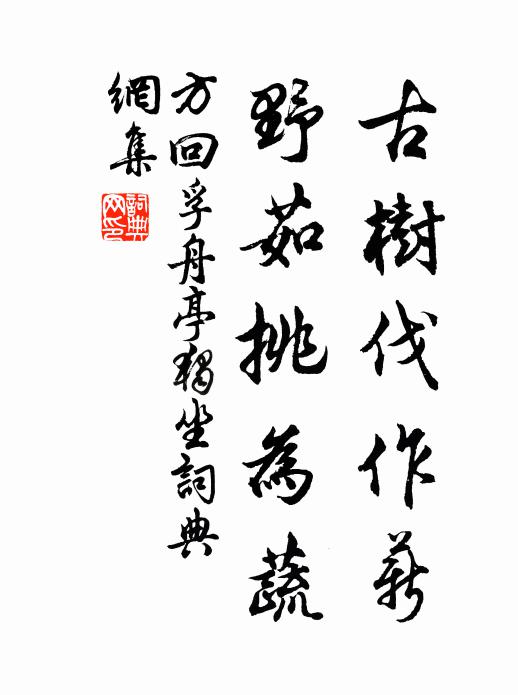 古樹伐作薪
野茹挑為蔬
方回孚舟亭獨坐詞典
網集
詞典
网印